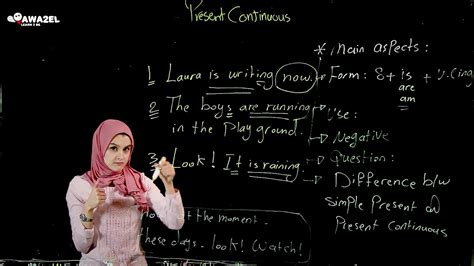 AWA2EL
LEARN 2 BE
Present Continuous
1 Laura is writing now.
2 The boys are running
in the Play ground.
3 Look! It is raining.
at the moment.
These days - look! (Watch!
* Main aspects:
Form: S + is + v.(ing
are
am
Use:
Negative
Question:
Difference b/w
simple Present
Present Continuous